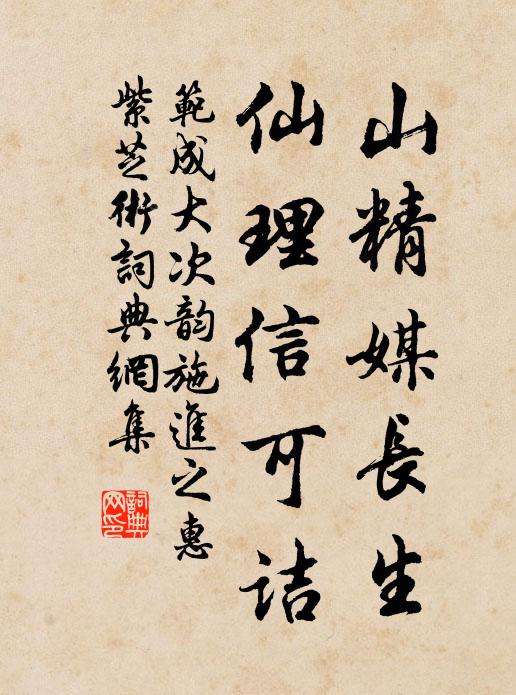 山精媒長生
仙理信可詰
範成大次韵施進之惠
紫芝術詞典網集
詞典网印